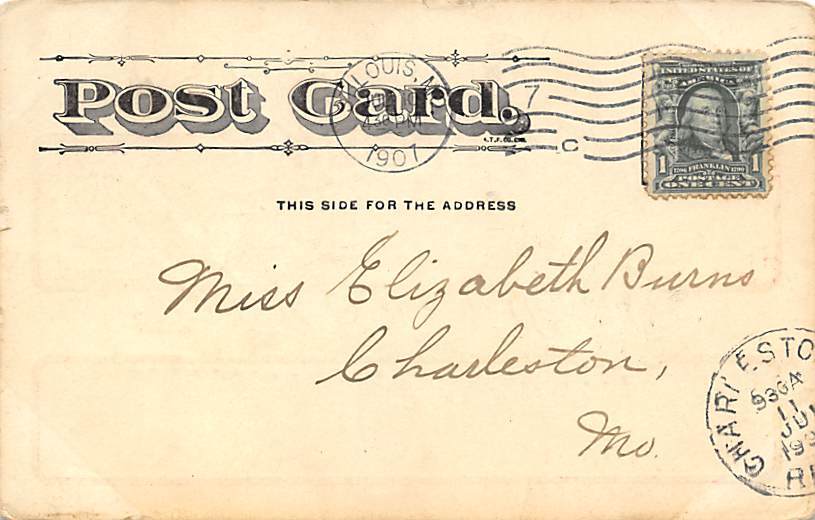 Post Card.
ST. LOUIS, M
4-30 PM
1907
7
C
A.T.F.CO.
UNITED STATES OF
AMERICA
1 1706 FRANKLIN 1790 1
POSTAGE
ONE CENT
THIS SIDE FOR THE ADDRESS
Miss Elizabeth Burns
Charleston,
Mo.
CHARLESTO
930A
11
JU
190